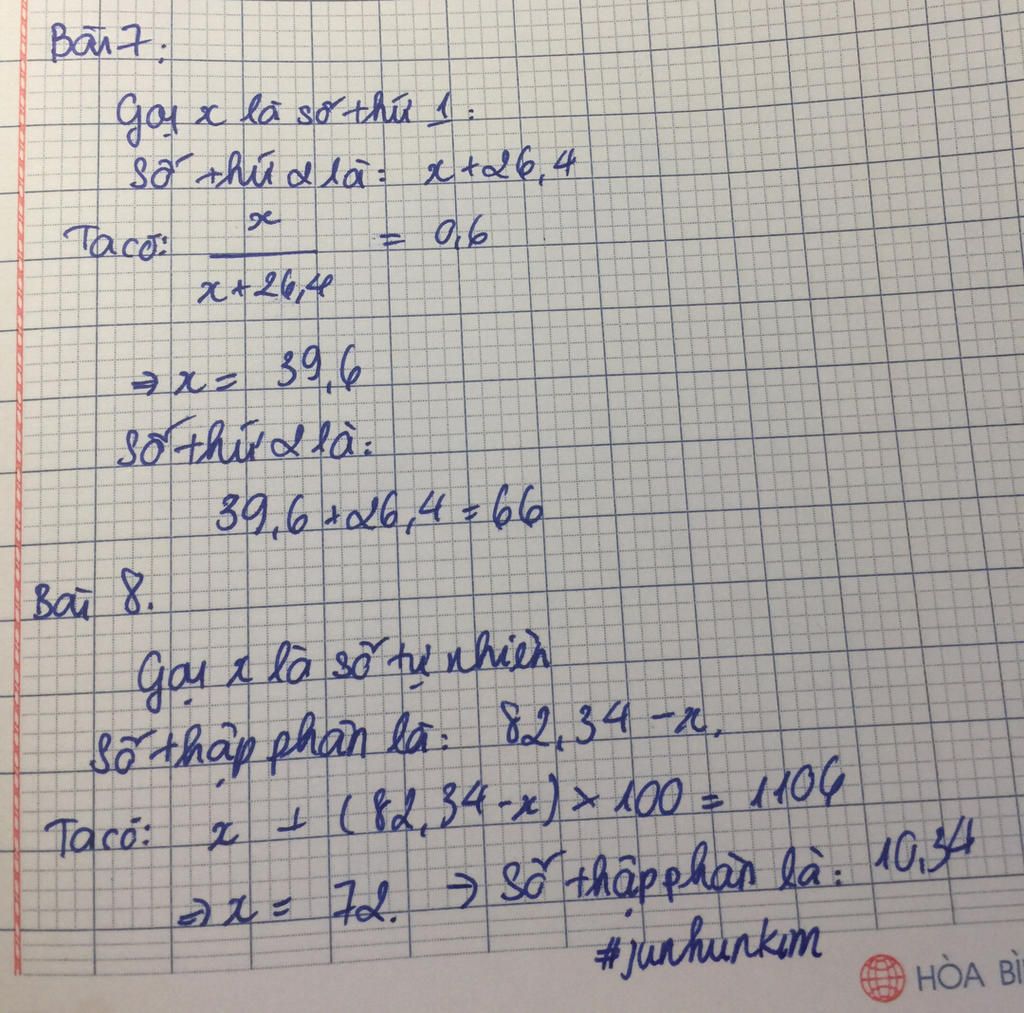 Bài 7:
Gọi x là số thứ 1:
Số thứ 2 là: x + 26,4
Ta có: x / (x + 26,4) = 0,6
⇒ x = 39,6
Số thứ 2 là:
39,6 + 26,4 = 66
Bài 8.
Gọi x là số tự nhiên
Số thập phân là: 82,34 - x.
Ta có: x + (82,34 - x) × 100 = 1106
⇒ x = 72. → Số thập phân là: 10,34
#junhunkim
HÒA BÌ